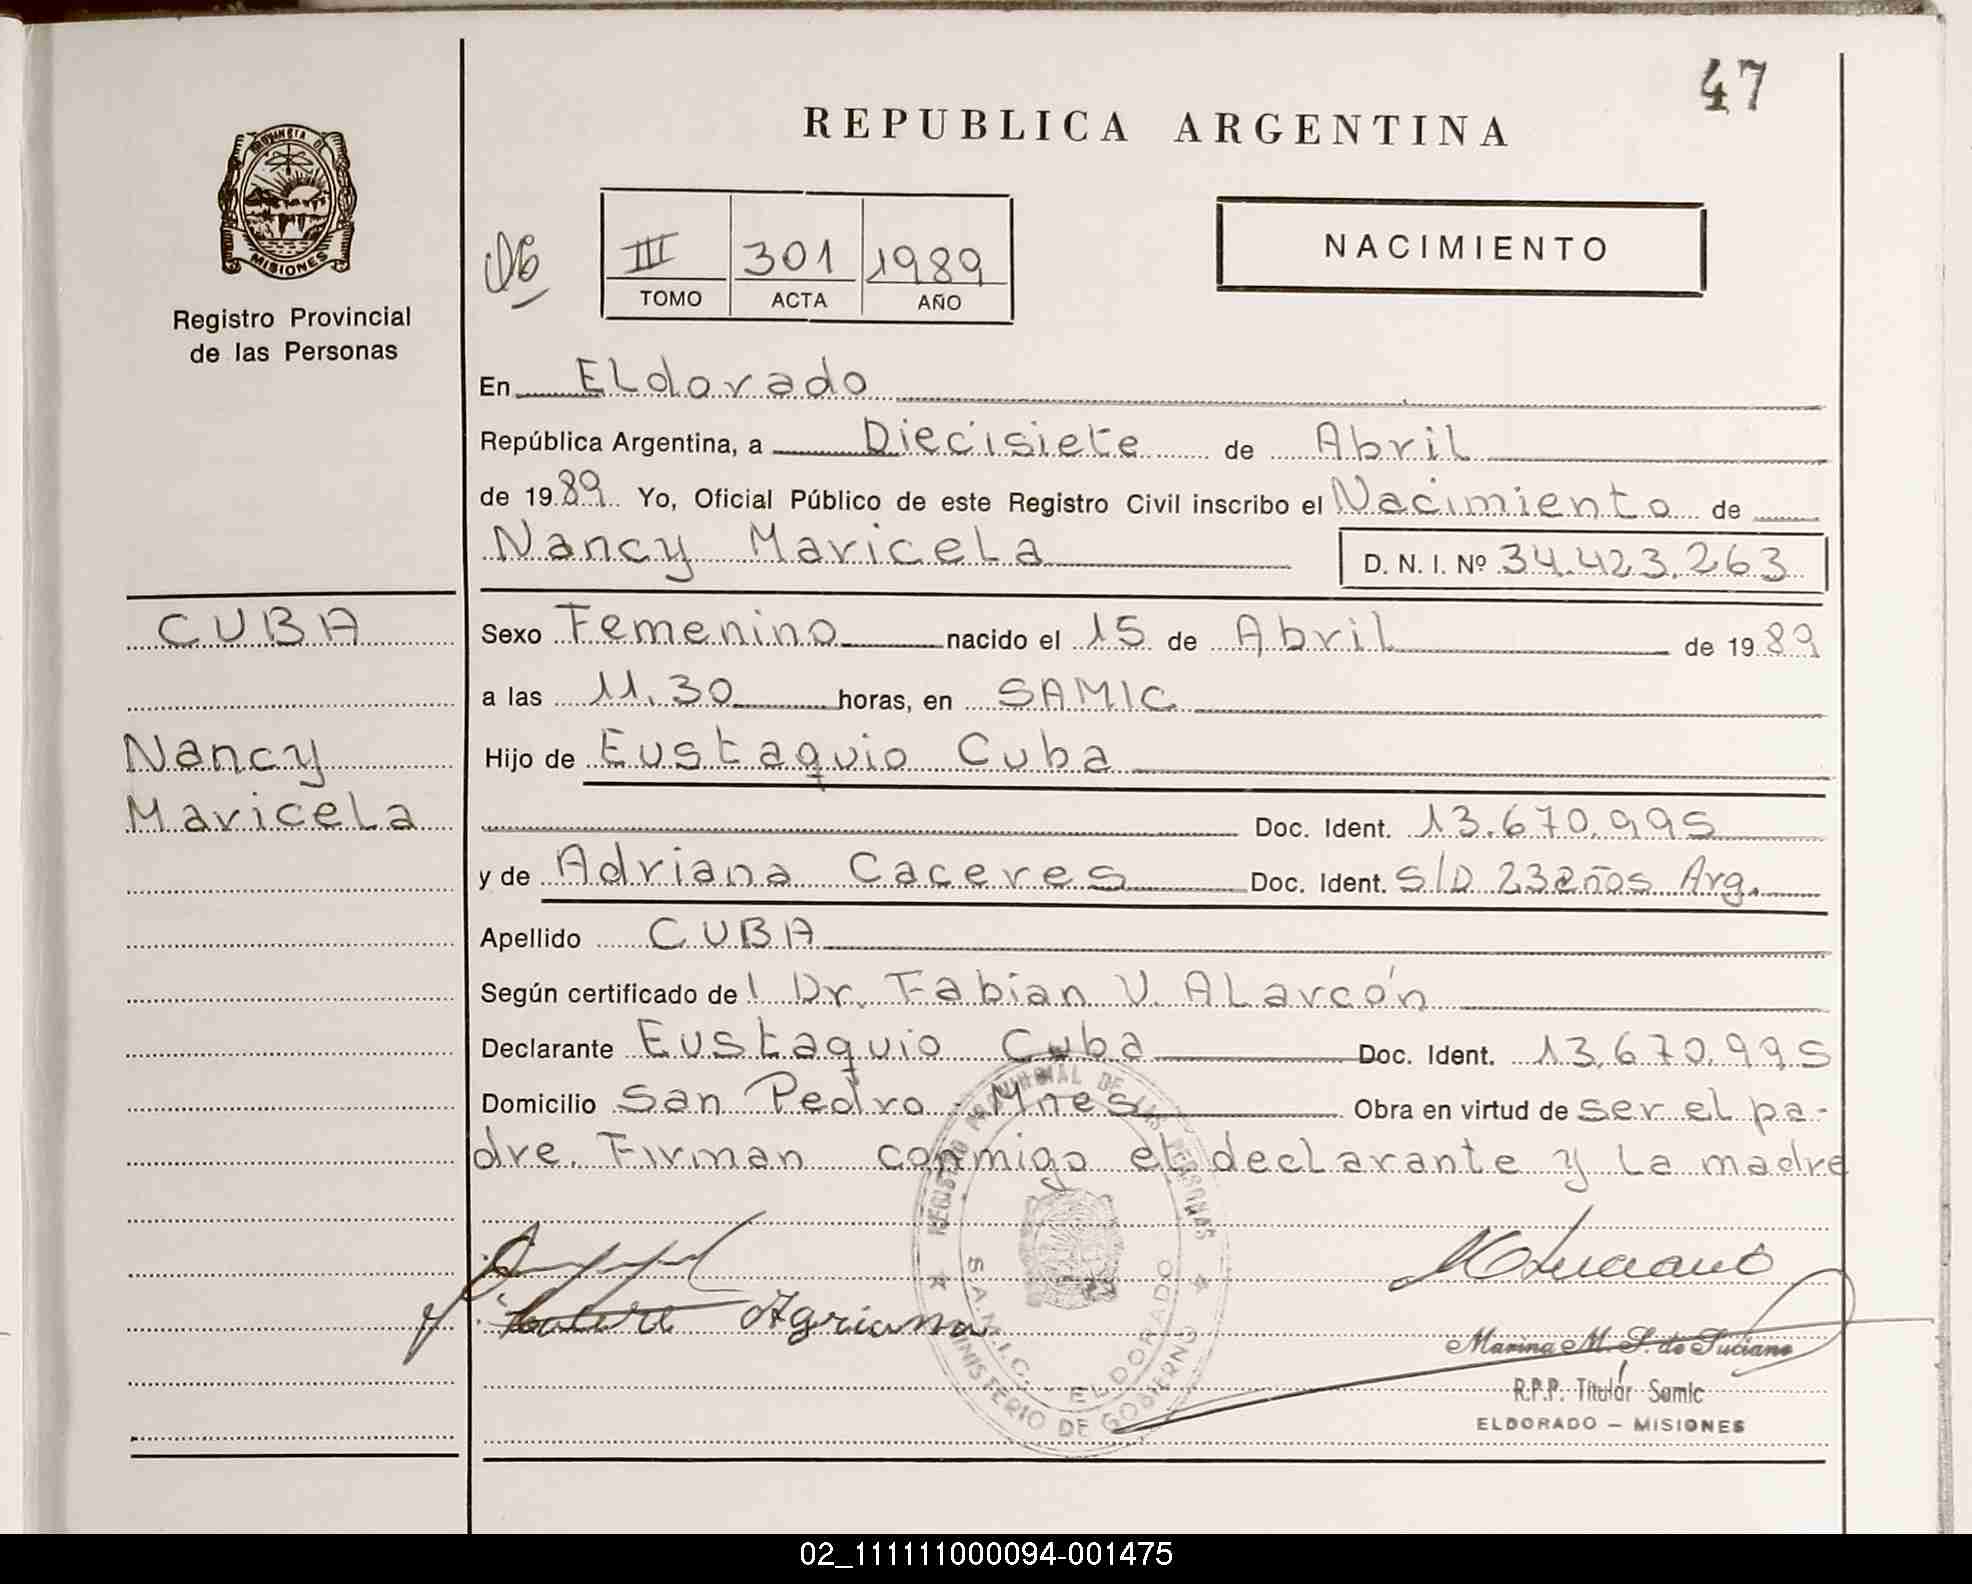 47
REPUBLICA ARGENTINA
PROVINCIA DE
MISIONES
Registro Provincial
de las Personas
III 301 1989
TOMO ACTA AÑO
NACIMIENTO
En Eldorado
República Argentina, a Diecisiete de Abril
de 1989 Yo, Oficial Público de este Registro Civil inscribo el Nacimiento de
Nancy Maricela D. N. I. Nº 34.423.263
CUBA
Nancy
Maricela
Sexo Femenino nacido el 15 de Abril de 1989
a las 11.30 horas, en SAMIC
Hijo de Eustaquio Cuba
Doc. Ident. 13.670.995
y de Adriana Caceres Doc. Ident. S/D 23 años Arg.
Apellido CUBA
Según certificado de l Dr. Fabian V. Alarcón
Declarante Eustaquio Cuba Doc. Ident. 13.670.995
Domicilio San Pedro - Mnes Obra en virtud de ser el pa-
dre. Firman conmigo el declarante y la madre
REGISTRO PROVINCIAL DE LAS PERSONAS
S.A.M.I.C. ELDORADO
MINISTERIO DE GOBIERNO
Marina M. S. de Luciano
R.P.P. Titular Samic
ELDORADO - MISIONES
02_111111000094-001475